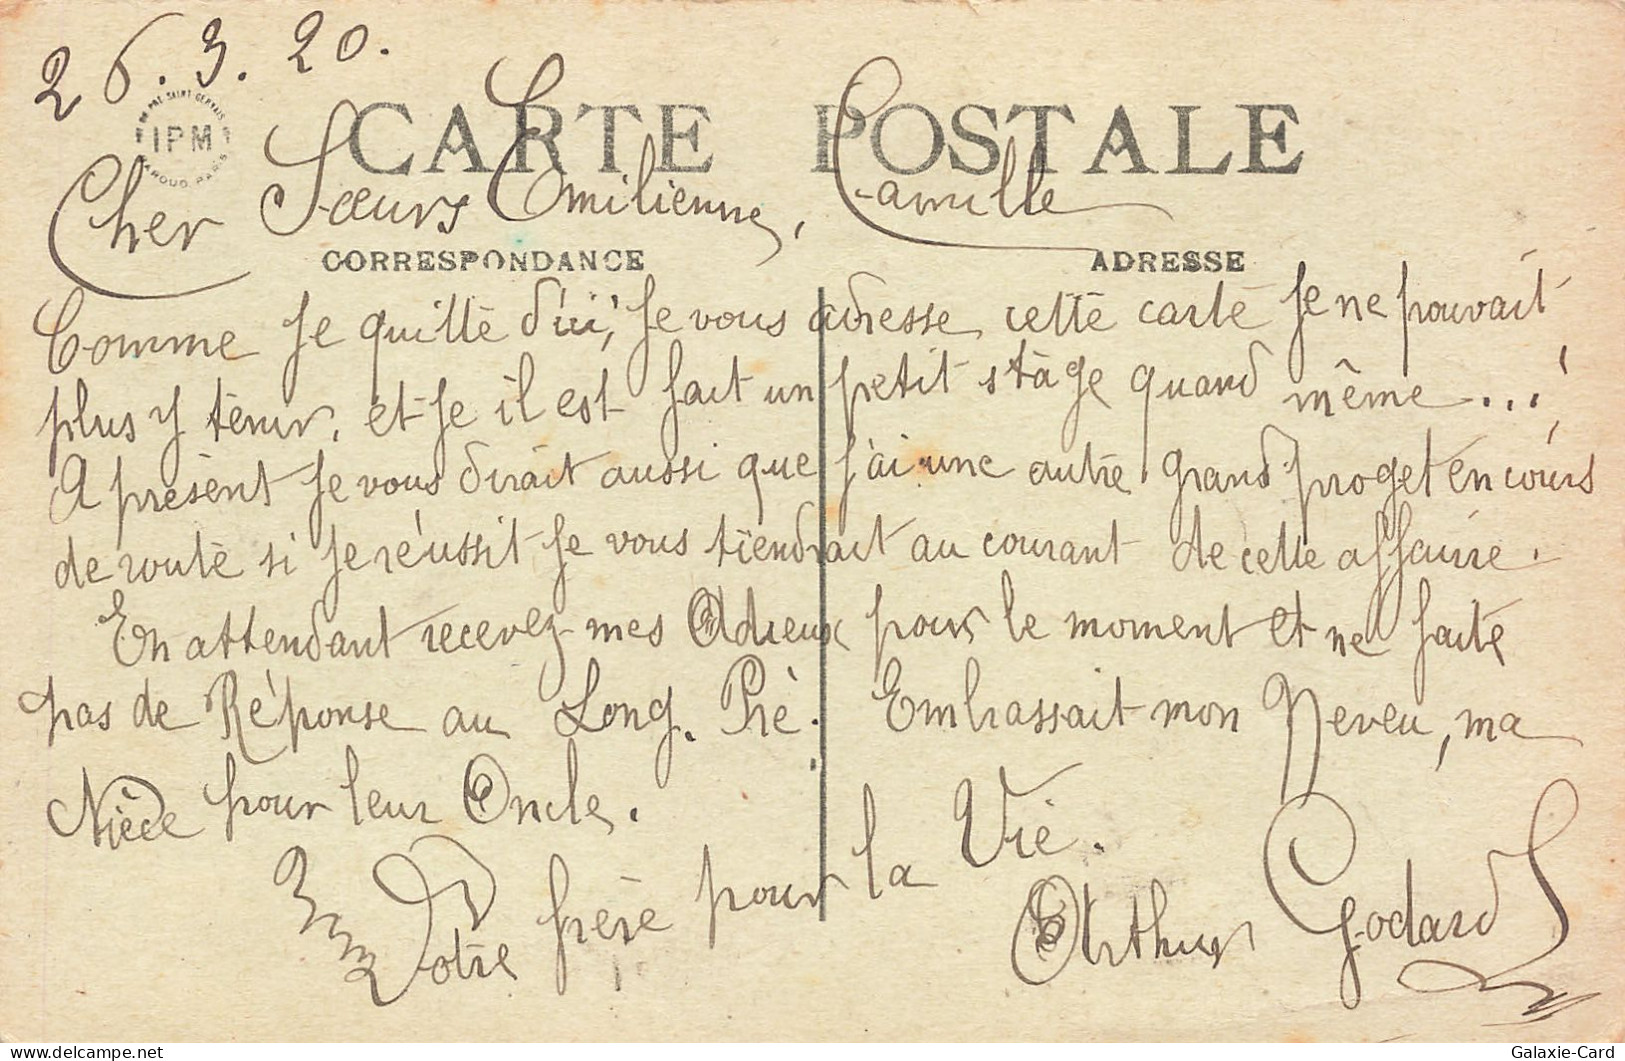 26.3.20.
IPM
CARTE POSTALE
Cher Sœurs Emilienne, Camille
CORRESPONDANCE
ADRESSE
Comme Je quitte d'ici, Je vous adresse cette carte Je ne pouvait
plus y tenir, et Je il est fait un petit stage quand même...!
A présent Je vous dirait aussi que j'ai une autre grand proget en cours
de route si Je réussit Je vous tiendrait au courant de cette affaire.
En attendant recevez mes Adieux pour le moment et ne faite
pas de Réponse au Long. Pré. Embrassait mon Neveu, ma
Nièce pour leur Oncle.
Votre frère pour la Vie.
Arthur Godard
delcampe.net
Galaxie-Card